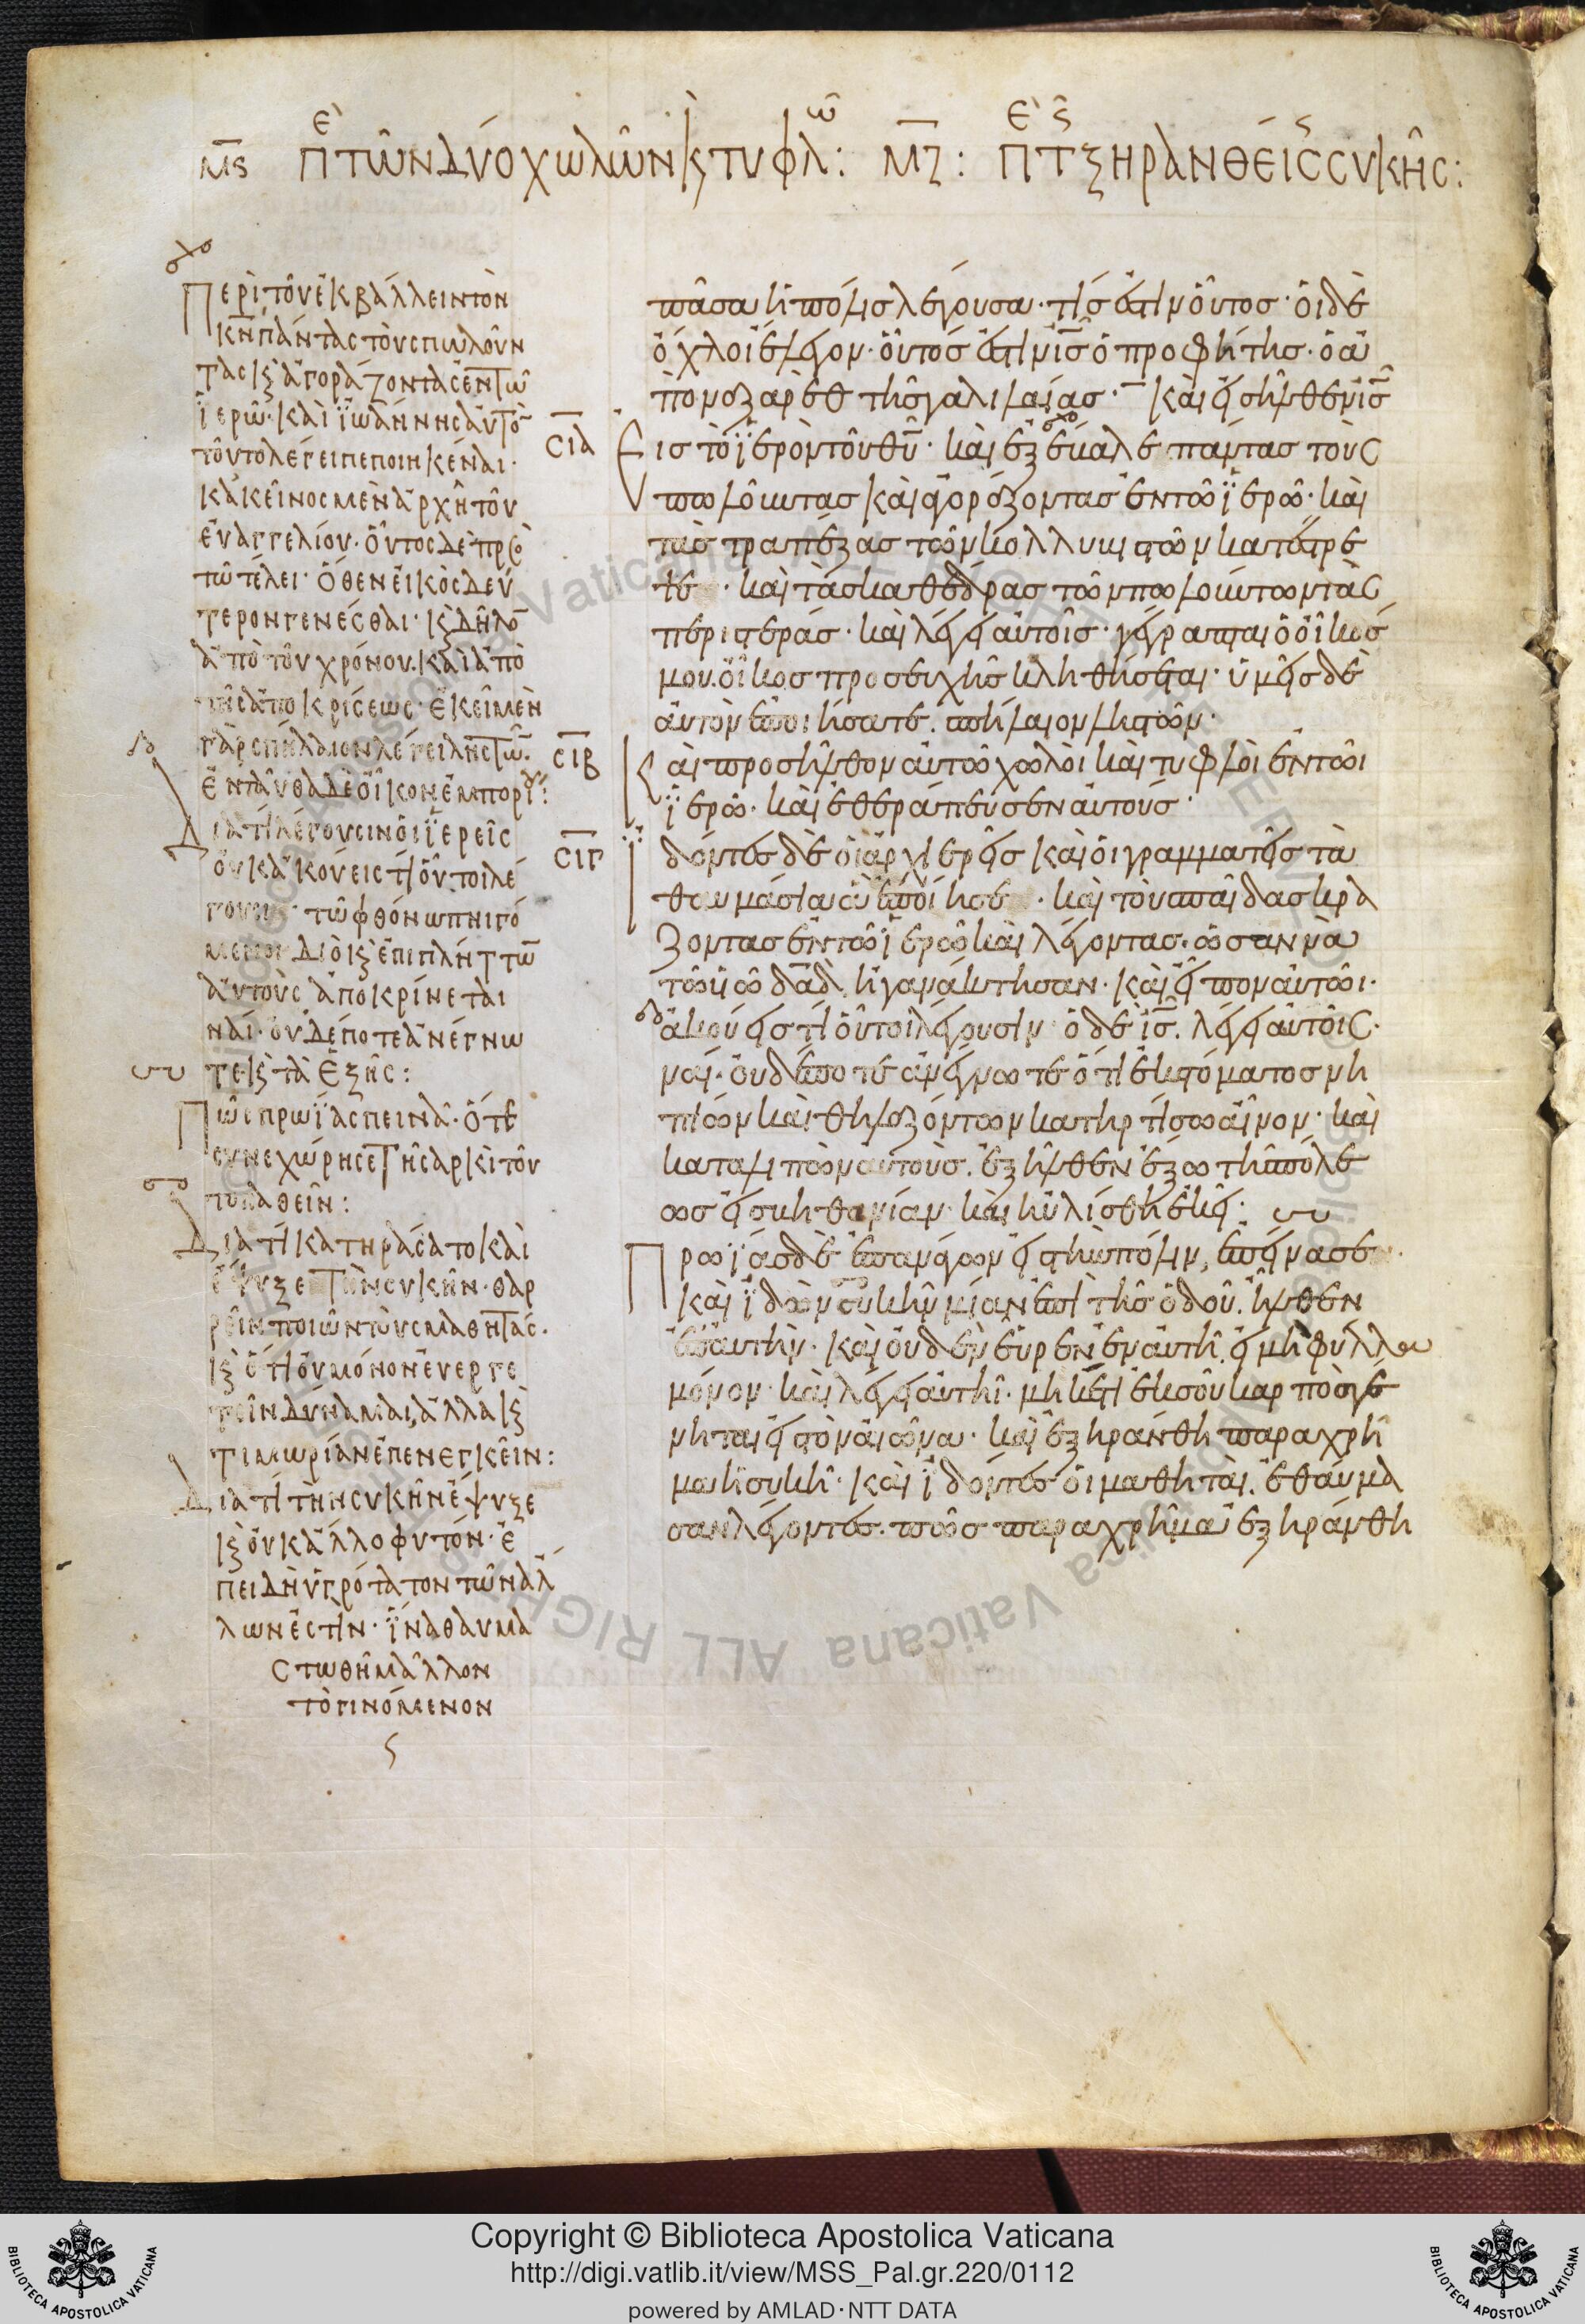 μϛ πε τῶν δύο χωλῶν κ τυφλῶ: μζ: πε τς ξηρανθείσς συκῆς:
Περὶ τοῦ ἐκβάλλειν τὸν
κν πάντας τοὺς πωλοῦν
τας κ ἀγοράζοντας ἐν τῶ
ἱερῶ· καὶ ἰωάννης αὐτὸ
τοῦτο λέγει πεποιηκέναι·
κἀκεῖνος μὲν ἀρχῆ τοῦ
εὐαγγελίου· οὗτος δὲ πρὸ
τῶ τέλει· ὅθεν εἰκὸς δεύ
τερον γενέσθαι· κ δῆλο
ἀπὸ τοῦ χρόνου. καὶ ἀπὸ
τῆς ἀποκρίσεως· ἐκεῖ μὲν
γὰρ σπήλαιον λέγει ληστῶ.
ἐνταῦθα δὲ οἶκον ἐμπορίου:
Διατί λέγουσιν οἱ ἱερεῖς
οὐκ ἀκούεις τί οὗτοι λέ
γουσι· τῶ φθόνω πνιγό
μενοι διὸ κ ἐπιπλήττω
αὐτοὺς ἀποκρίνεται
ναί· οὐδέποτε ἀνέγνω
τε κ τὰ ἑξῆς:
Πῶς πρωΐας πεινᾶ· ὅτε
συνεχώρησε τῆ σαρκὶ τοῦ
το παθεῖν:
Διατί κατηράσατο καὶ
ἔψυξε τὴν συκῆν· θαρ
ρεῖν ποιῶν τοὺς μαθητάς·
κ ὅτι οὐ μόνον ἐνεργε
τεῖν δύναμαι, ἀλλὰ κ
τιμωρίαν ἐπενεγκεῖν:
Διατί τὴν συκῆν ἔψυξε
κ οὐκ ἄλλο φυτόν· ἐ
πειδὴ ὑγρότατον τῶν ἀλ
λων ἐστίν· ἵνα θαυμα
στωθῆ μᾶλλον
τὸ γινόμενον
πᾶσα ἡ πόλις λέγουσα· τίς ἐστιν οὗτος· οἱ δὲ
ὄχλοι ἔλεγον· οὗτός ἐστιν ις ὁ προφήτης· ὁ ἀ
πὸ ναζαρὲθ τῆς γαλιλαίας· καὶ εἰσῆλθεν ις
σια Εἰς τὸ ἱερὸν τοῦ θυ· καὶ ἐξέβαλε πάντας τοὺς
πωλοῦντας καὶ ἀγοράζοντας ἐν τῶ ἱερῶ· καὶ
τὰς τραπέζας τῶν κολλυβιστῶν κατέστρε
ψε· καὶ τὰς καθέδρας τῶν πωλούντων τὰς
περιστεράς· καὶ λέγει αὐτοῖς· γέγραπται ὁ οἶκός
μου. οἶκος προσευχῆς κληθήσεται· ὑμεῖς δὲ
αὐτὸν ἐποιήσατε. σπήλαιον ληστῶν·
σιβ Καὶ προσῆλθον αὐτῶ χωλοὶ καὶ τυφλοὶ ἐν τῶι
ἱερῶ· καὶ ἐθεράπευσεν αὐτούς·
σιγ Ἰδόντες δὲ οἱ ἀρχιερεῖς καὶ οἱ γραμματεῖς τὰ
θαυμάσια ἃ ἐποίησε· καὶ τοὺς παῖδας κρά
ζοντας ἐν τῶ ἱερῶ καὶ λέγοντας· ὡσαννὰ
τῶ υἱῶ δαδ ἠγανάκτησαν· καὶ εἶπον αὐτῶι·
ἀκούεις τί οὗτοι λέγουσιν ὁ δὲ ις. λέγει αὐτοῖς·
ναί· οὐδέποτε ἀνέγνωτε ὅτι ἐκ στόματος νη
πίων καὶ θηλαζόντων κατηρτίσω αἶνον· καὶ
καταλιπὼν αὐτούς. ἐξῆλθεν ἔξω τῆς πόλε
ως εἰς βηθανίαν· καὶ ηὐλίσθη ἐκεῖ·
Πρωΐας δὲ ἐπανάγων εἰς τὴν πόλιν, ἐπείνασε·
καὶ ἰδὼν συκῆν μίαν ἐπὶ τῆς ὁδοῦ. ἦλθεν
ἐπ αὐτήν· καὶ οὐδὲν εὗρεν ἐν αὐτῆ. εἰ μὴ φύλλα
μόνον· καὶ λέγει αὐτῆ· μηκέτι ἐκ σοῦ καρπὸς γέ
νηται εἰς τὸν αἰῶνα· καὶ ἐξηράνθη παραχρῆ
μα ἡ συκῆ· καὶ ἰδόντες οἱ μαθηταὶ. ἐθαύμα
σαν λέγοντες. πῶς παραχρῆμα ἐξηράνθη
Copyright © Biblioteca Apostolica Vaticana
http://digi.vatlib.it/view/MSS_Pal.gr.220/0112
powered by AMLAD·NTT DATA
BIBLIOTECA APOSTOLICA VATICANA
BIBLIOTECA APOSTOLICA VATICANA